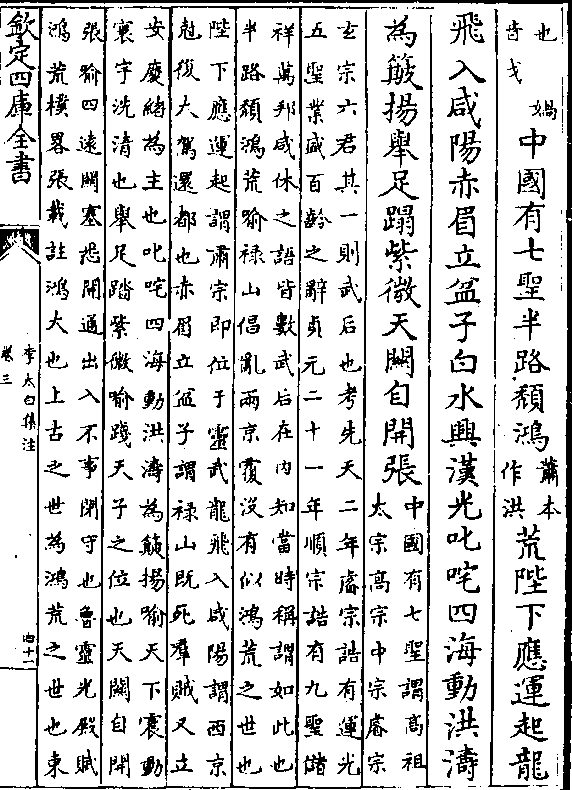 也
昔戈
媧
中國有七聖半路頹鴻
蕭本
作洪
荒陛下應運起龍
飛入咸陽赤眉立盆子白水興漢光叱咤四海動洪濤
為簸揚舉足蹋紫微天關自開張
中國有七聖謂髙祖
太宗髙宗中宗睿宗
玄宗六君其一則武后也考先天二年睿宗誥有運光
五聖業盛百齡之辭貞元二十一年順宗誥有九聖儲
祥萬邦咸休之語皆數武后在内知當時稱謂如此也
半路頹鴻荒喻禄山倡亂兩京覆沒有似鴻荒之世也
陛下應運起謂肅宗即位于靈武龍飛入咸陽謂西京
尅復大駕還都也赤眉立盆子謂禄山既死羣賊又立
安慶緒為主也叱咤四海動洪濤為簸揚喻天下震動
寰宇洗清也舉足踏紫微喻踐天子之位也天關自開
張喻四遠關塞悉開通出入不事閉守也魯靈光殿賦
鴻荒樸畧張載註鴻大也上古之世為鴻荒之世也東
欽定四庫全書
李太白集注
卷三
四十一